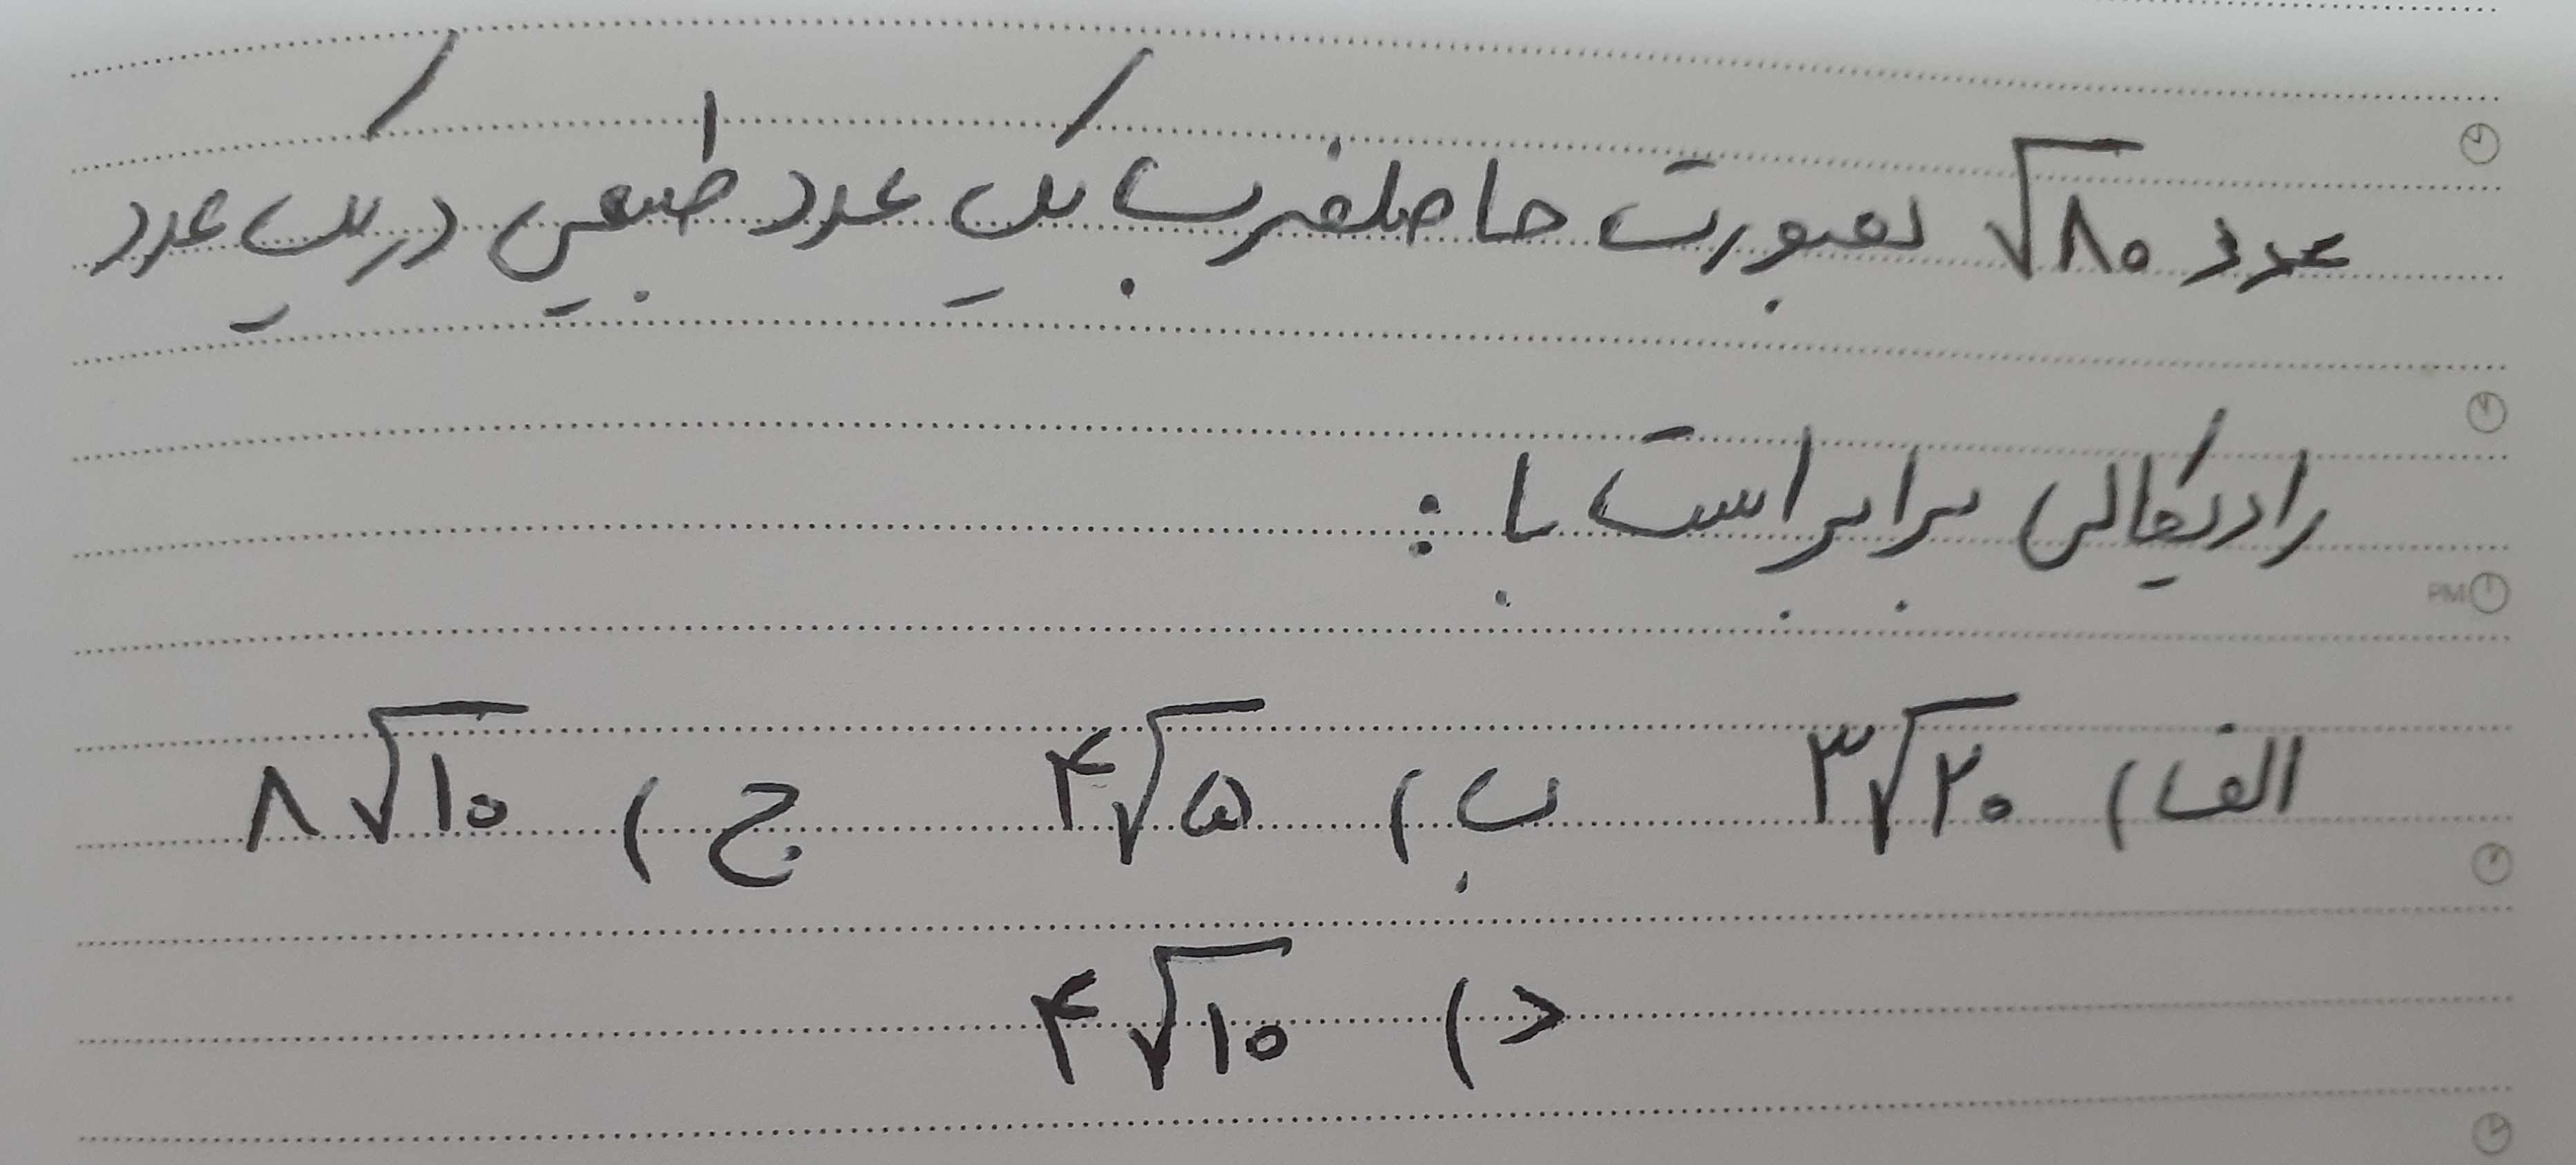 عدد √۸۰ بصورت حاصلضرب یک عدد طبیعی در یک عدد
رادیکالی برابر است با :
الف) ۳√۲۰ ب) ۴√۵ ج) ۸√۱۰
د) ۴√۱۰
PM